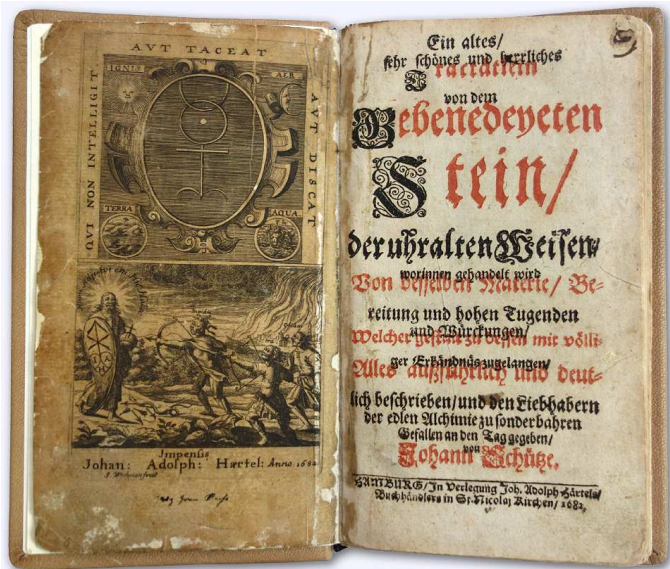 AVT TACEAT
QVI NON INTELLIGIT
AVT DISCAT
IGNIS
AER
TERRA
AQUA
Impensis
Johan: Adolph: Hærtel: Anno 1682
Ein altes/
sehr schönes und herrliches
Tractätlein
von dem
Gebenedeyeten
Stein/
der uhralten Weisen/
worinnen gehandelt wird
Von desselben Materie/ Be-
reitung und hohen Tugenden
und Würckungen/
Welcher gestalt zu dessen mit völli-
ger Erkändnüs zugelangen/
Alles außführlich und deut-
lich beschrieben/ und den Liebhabern
der edlen Alchimie zu sonderbahren
Gefallen an den Tag gegeben/
von
Johann Schütze.
HAMBURG/ In Verlegung Joh. Adolph Härtels/
Buchhändlers in St. Nicolai Kirchen/ 1682.